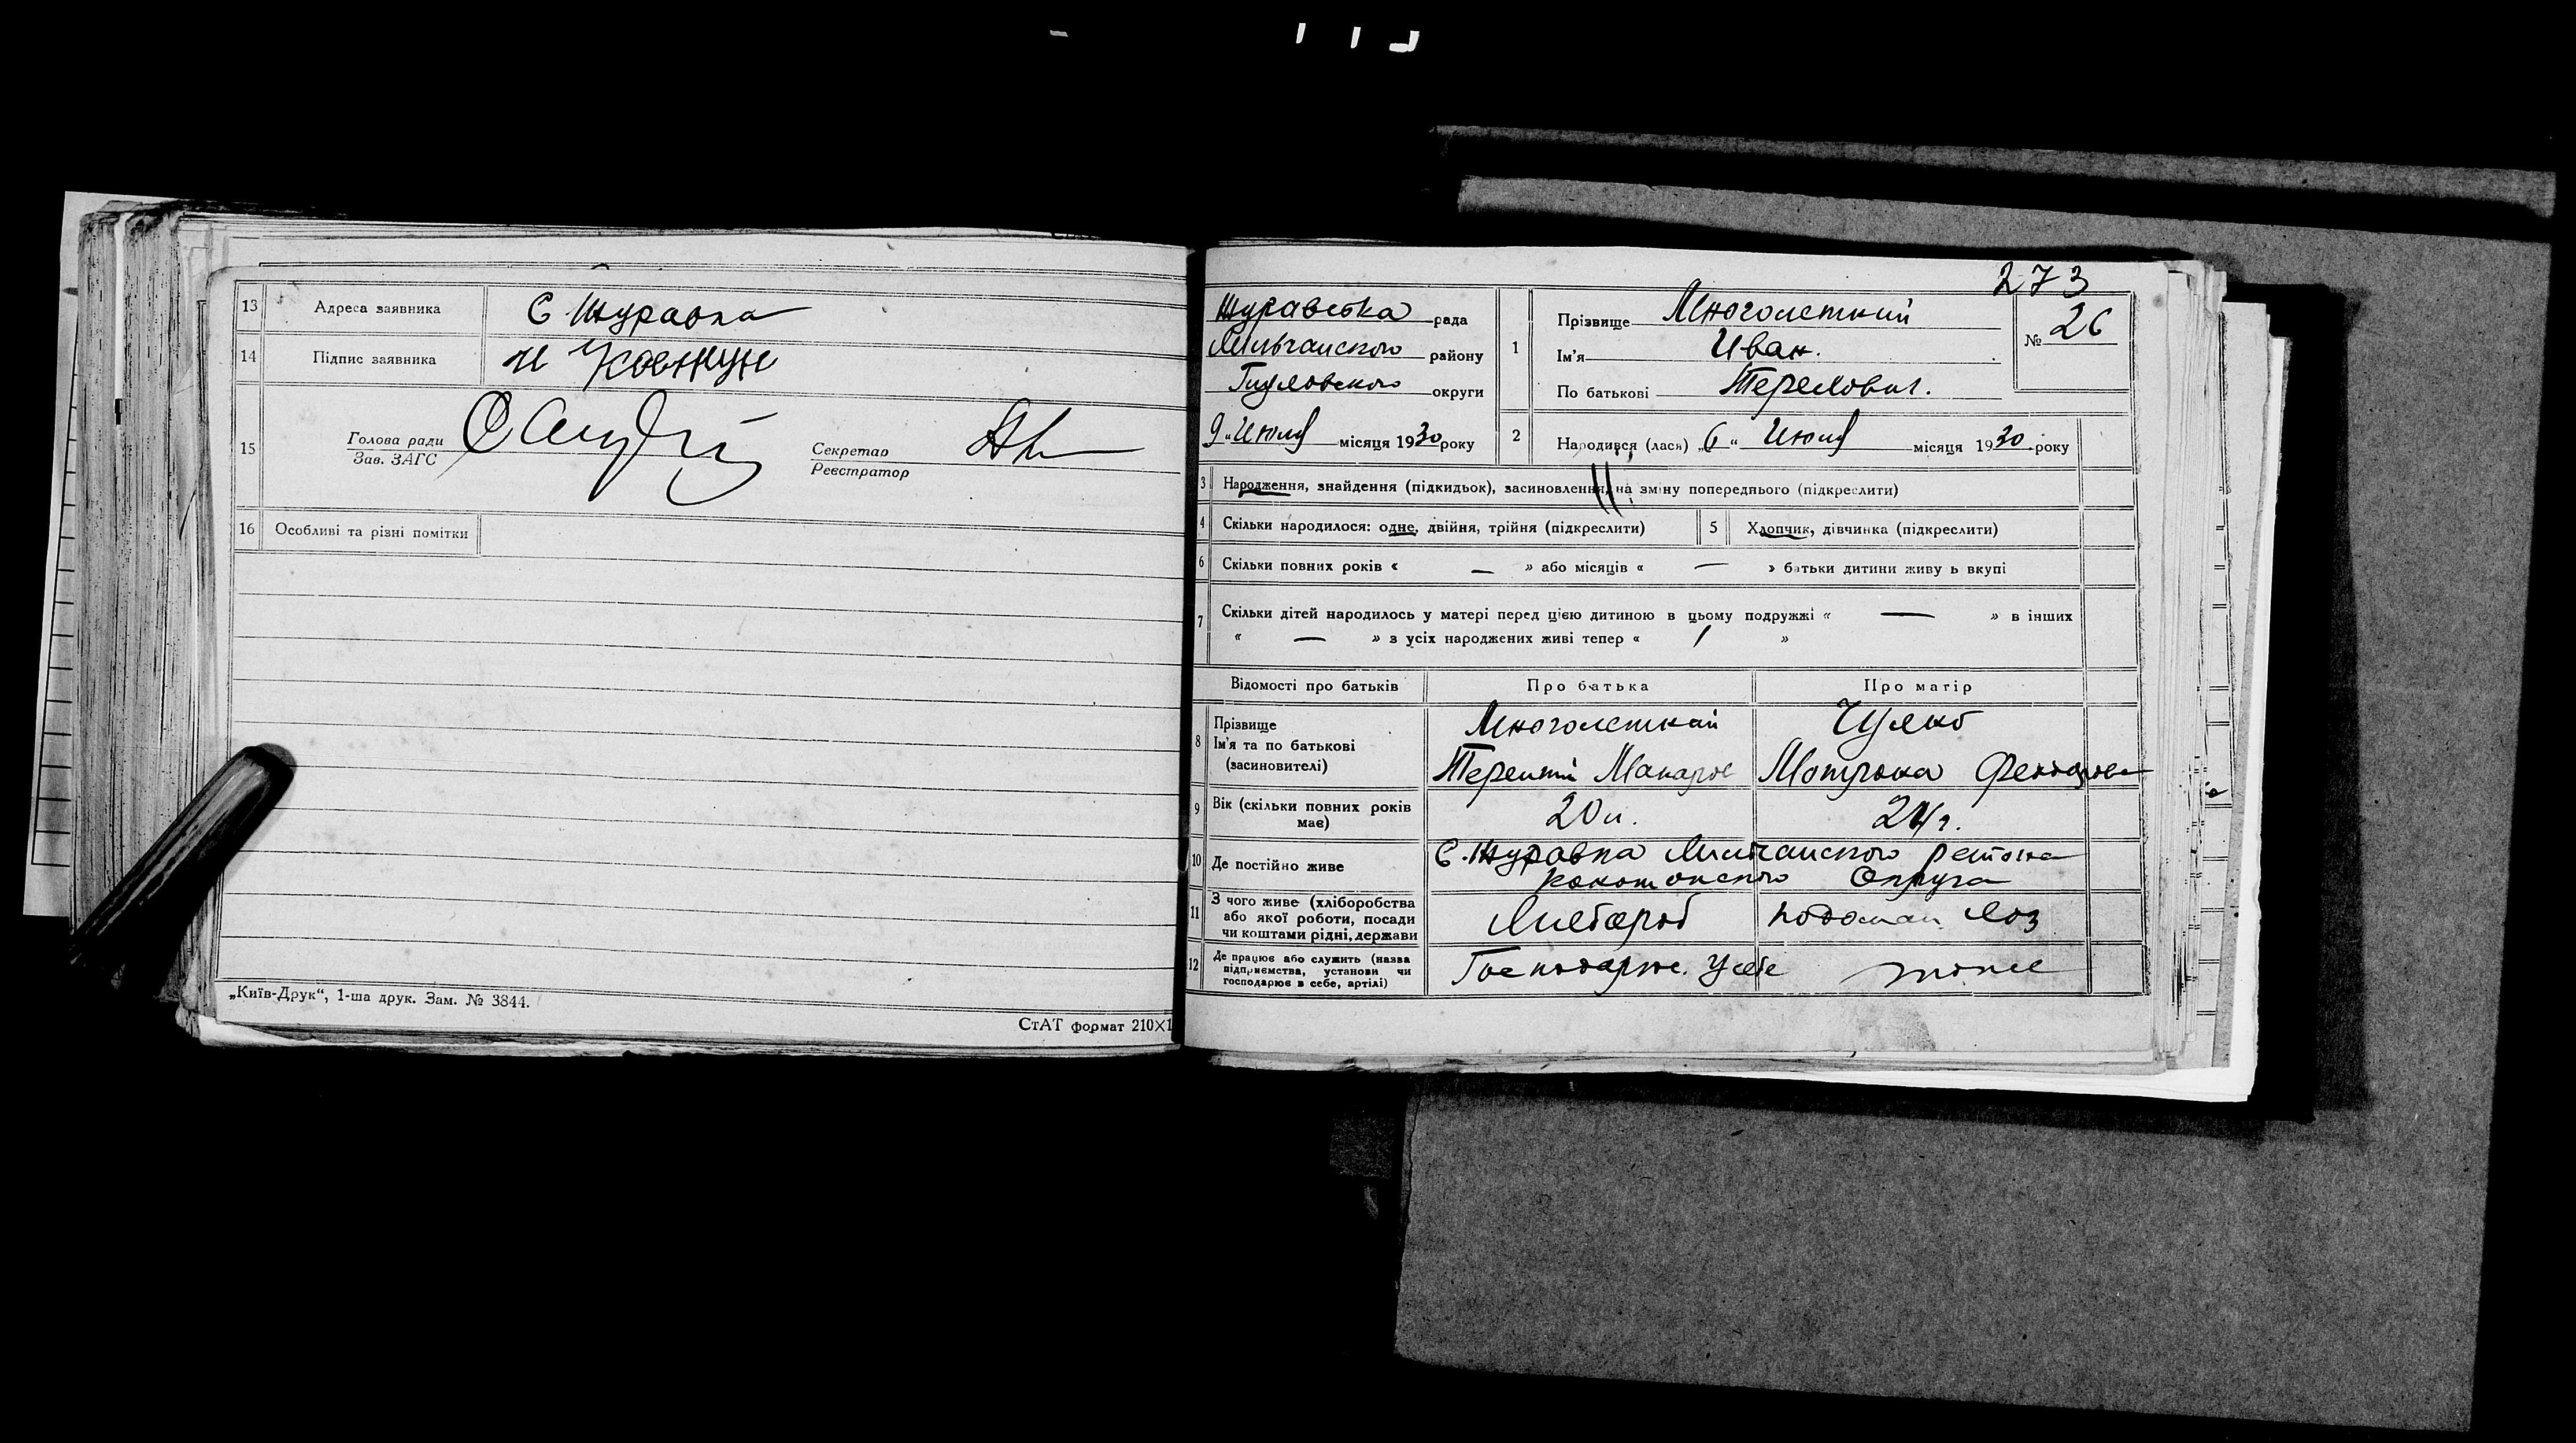 13 Адреса заявника С Журавка
14 Підпис заявника
15 Голова ради
Зав. ЗАГС
Секретар
Реєстратор
16 Особливі та різні помітки
„Київ-Друк“, 1-ша друк. Зам. № 3844.
СтАТ формат 210×1
273
Журавська рада
району
округи
9 „ Июля місяця 1930 року
1 Прізвище Многолеткий
Ім'я Иван.
По батькові
№ 26
2 Народився (лася) „6“ Июля місяця 1930 року
3 Народження, знайдення (підкидьок), засиновлення, на зміну попереднього (підкреслити)
4 Скільки народилося: одне, двійня, трійня (підкреслити)
5 Хлопчик, дівчинка (підкреслити)
6 Скільки повних років « — » або місяців « — » батьки дитини живу ь вкупі
7 Скільки дітей народилось у матері перед цією дитиною в цьому подружжі « — » в інших
« — » з усіх народжених живі тепер « / »
Відомості про батьків Про батька Про матір
8 Прізвище
Ім'я та по батькові
(засиновителі)
Многолеткий
Терентій Макаров
Мотрона
9 Вік (скільки повних років
має)
20
10 Де постійно живе
С. Журавка
Округа
11 З чого живе (хліборобства
або якої роботи, посади
чи коштами рідні, держави
12 Де працює або служить (назва
підприємства, установи чи
господарює в себе, артілі)
Господарює. У себе тоже